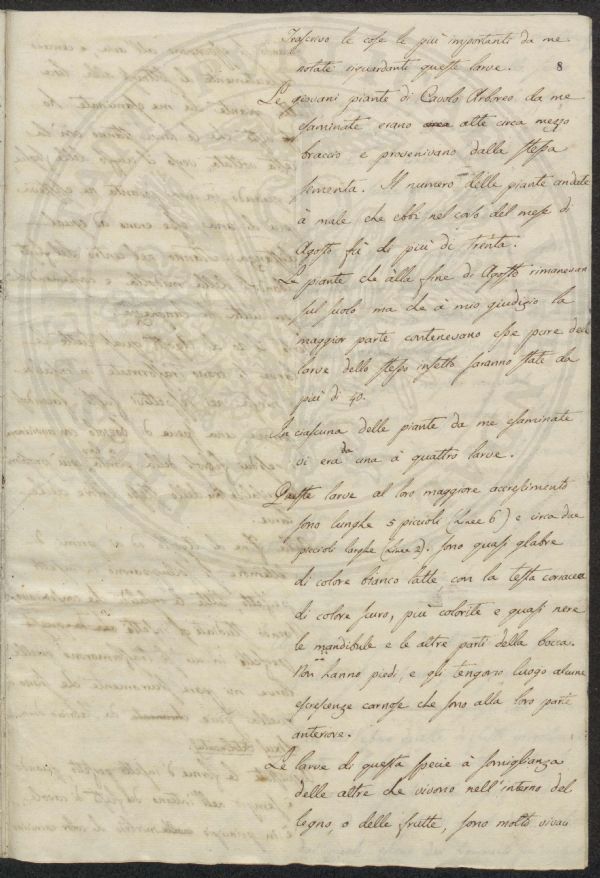 Trascrivo le cose le più importanti da me
notate riguardanti queste larve.
8
Le giovani piante di Cavolo Arboreo da me
esaminate erano alte circa mezzo
braccio e provenivano dalla stessa
sementa. Il numero delle piante andate
à male che ebbi nel corso del mese di
Agosto fù di più di trenta.
Le piante che alla fine di Agosto rimanevan
sul suolo ma che à mio giudizio la
maggior parte contenevano esse pure delle
larve dello stesso insetto saranno state da
più di 40.
In ciascuna delle piante da me esaminate
vi era da una à quattro larve.
Queste larve al loro maggiore accrescimento
sono lunghe 5 piccioli (Linee 6) e circa due
piccioli larghe (Linee 2). sono quasi glabre
di colore bianco latte con la testa coriacea
di colore scuro, più colorite e quasi nere
le mandibule e le altre parti della bocca.
Non hanno piedi, e gli tengono luogo alcune
escrescenze carnose che sono alla loro parte
anteriore.
Le larve di questa specie à somiglianza
delle altre che vivono nell'interno del
legno, o delle frutte, sono molto vivaci